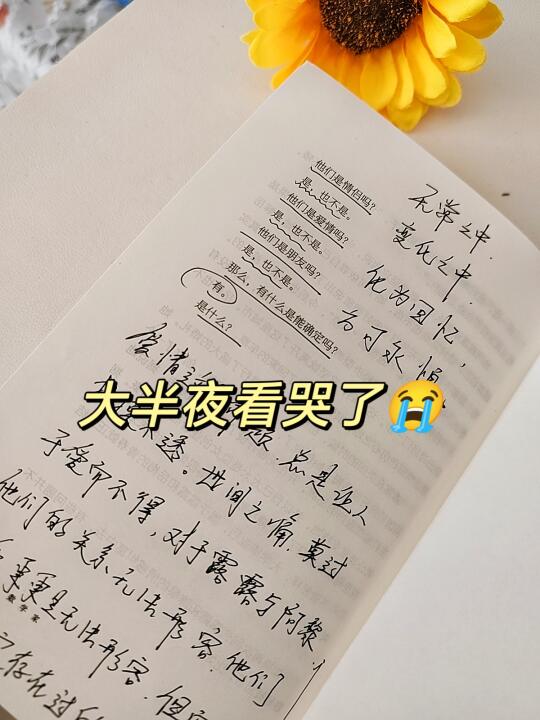 他们是情侣吗?
是,也不是。
他们是爱情吗?
是,也不是。
他们是朋友吗?
是,也不是。
那么,有什么是能确定吗?
有。
是什么?
无常之中.
变化之中.
化为回忆,
方可永恒
爱情
大半夜看哭了😭
总是让人
不透。世间之痛.莫过
于爱而不得,对于露露与阿黎
他们的关系无法形容.他们
更是无法形容.但
存在过的
数学家